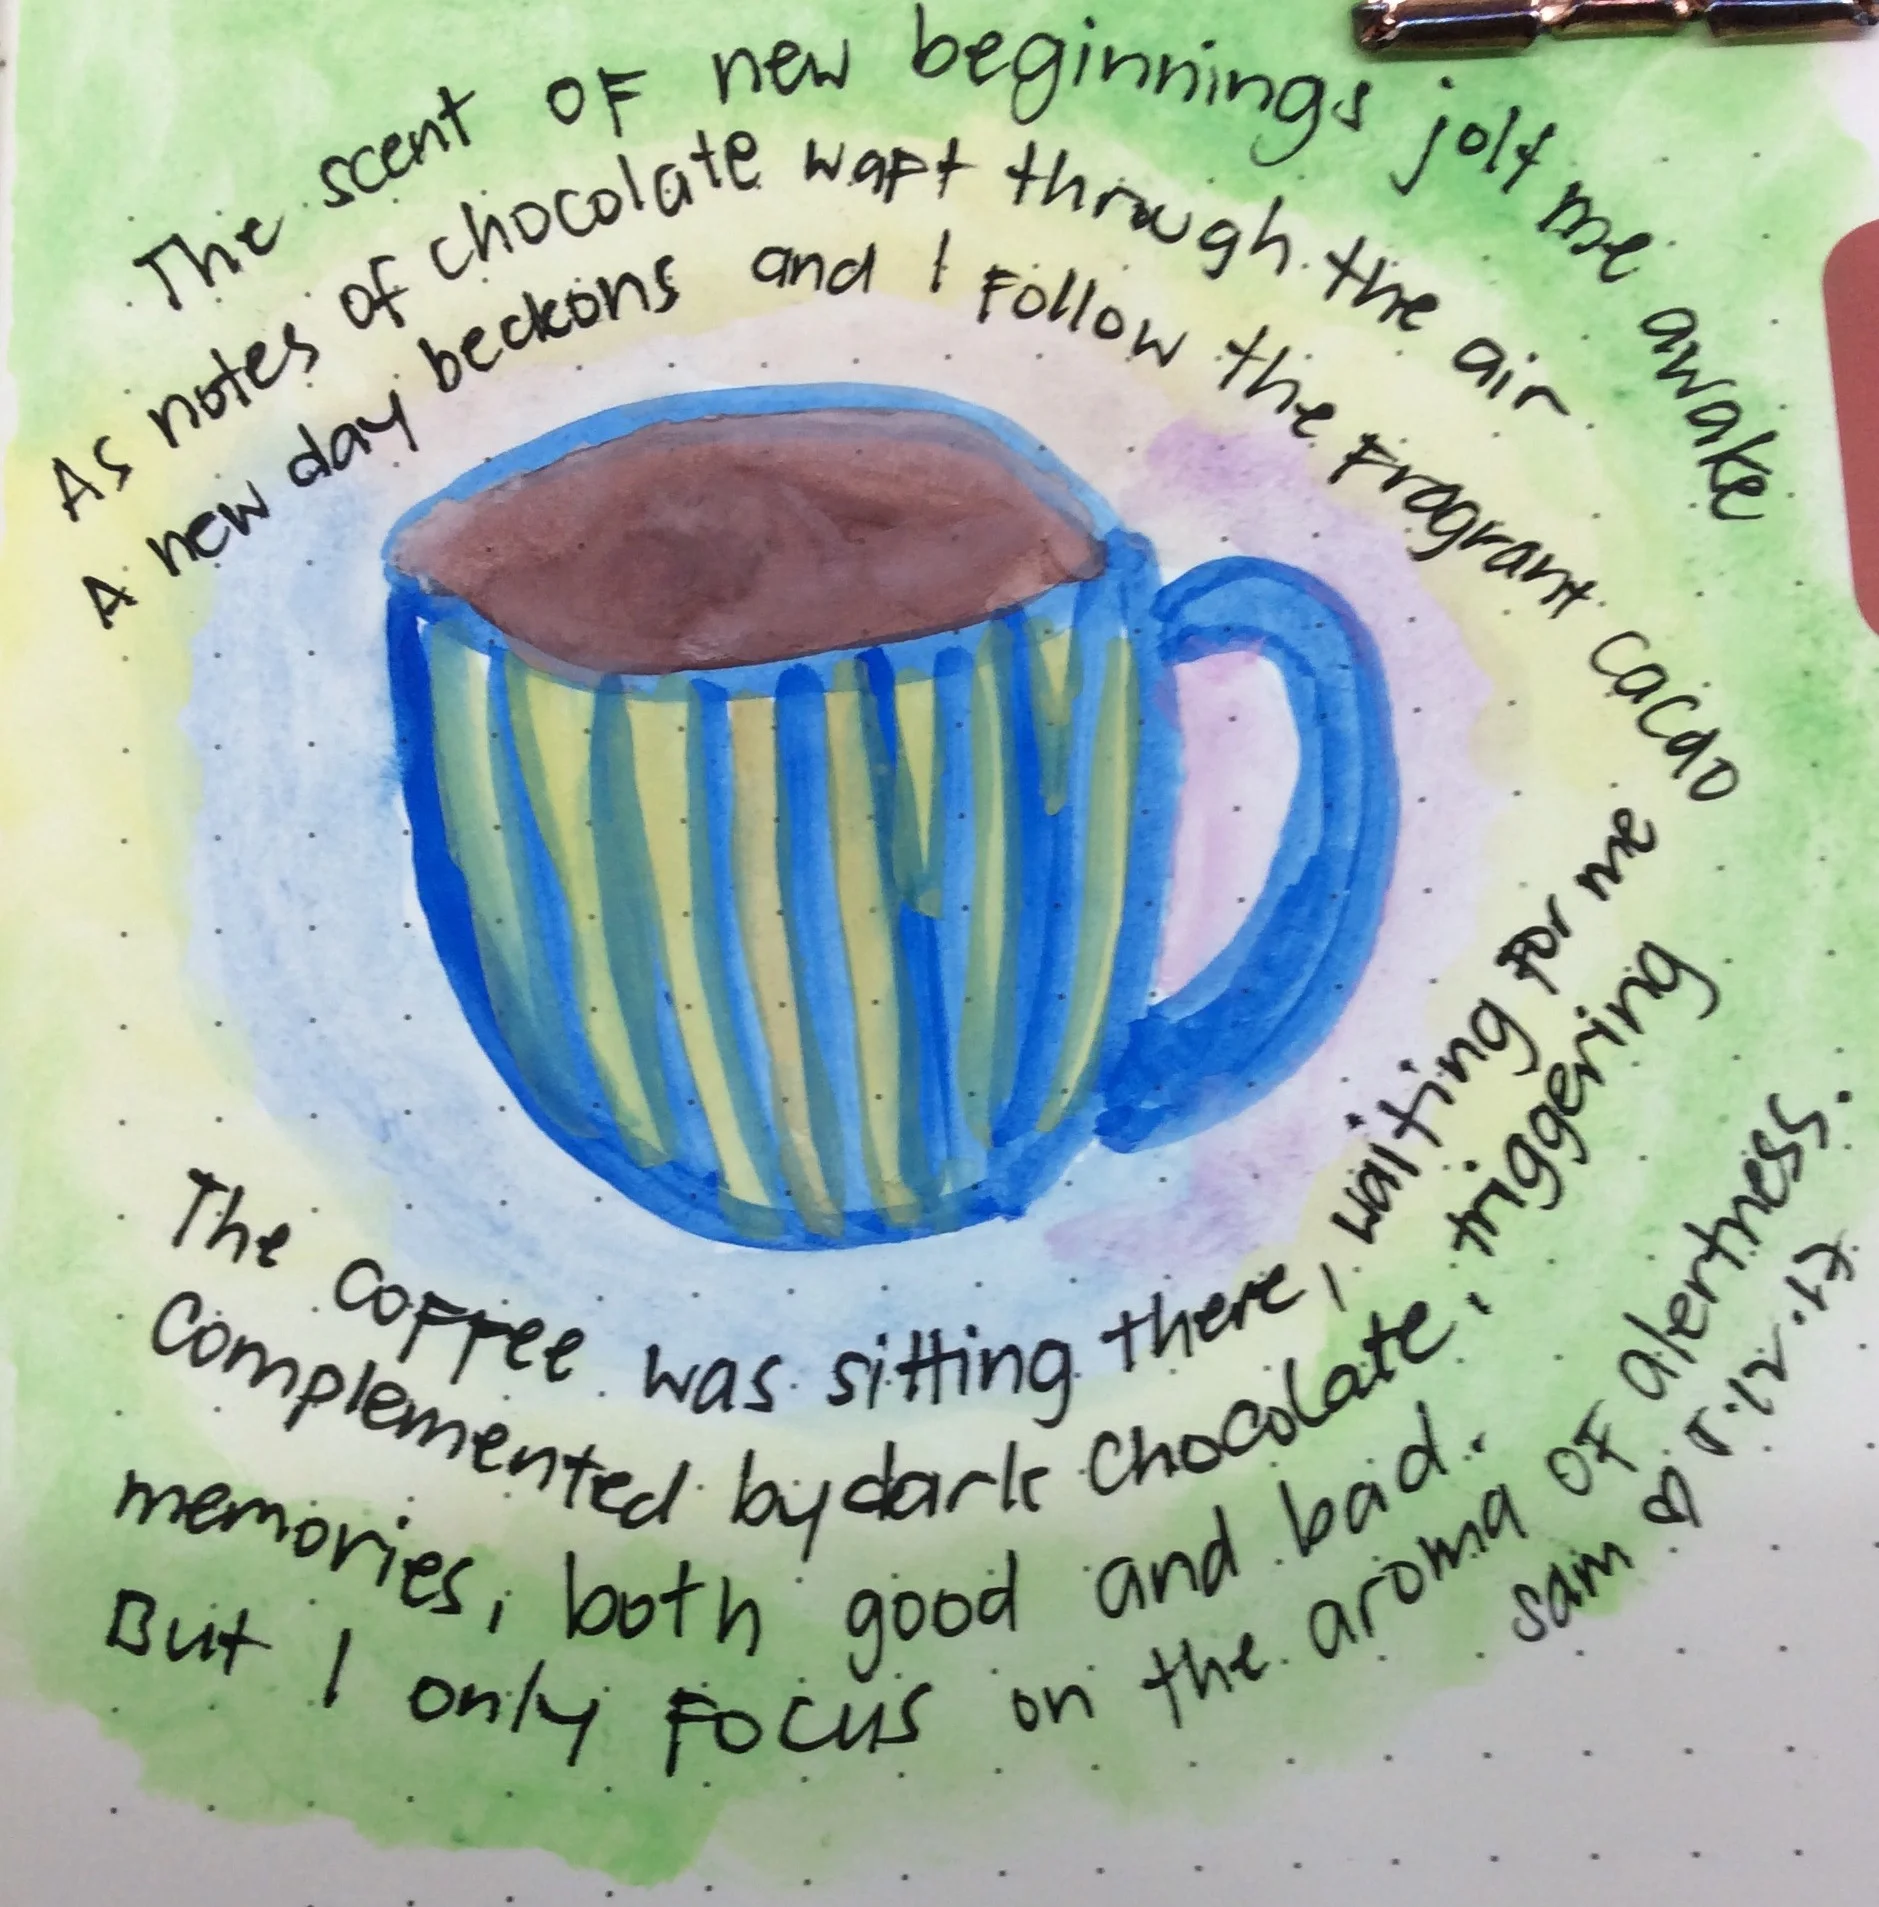 The scent of new beginnings jolt me awake
As notes of chocolate waft through the air
A new day beckons and I follow the fragrant cacao
The coffee was sitting there, waiting for me
Complemented by dark chocolate, triggering
memories, both good and bad.
But I only focus on the aroma of alertness.
sam ♡ 5.12.17